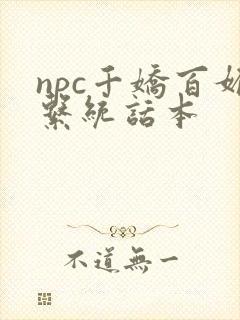 npc千嬌百
繫統話本
不道無一